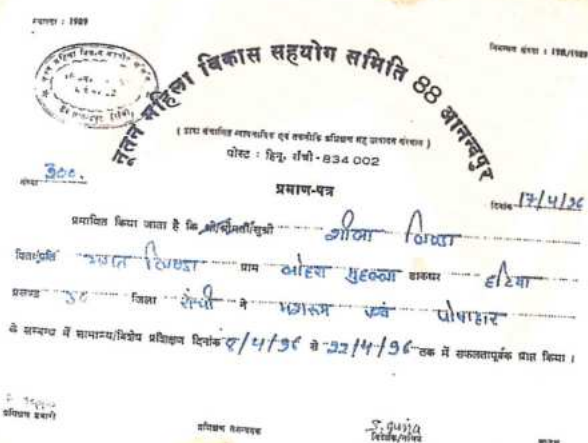 स्थापना : 1989
निबन्धन संख्या : 198/1989
नूतन महिला विकास सहयोग समिति 88 आनन्दपुर
( द्वारा संचालित व्यावसायिक एवं तकनीकि प्रशिक्षण सह उत्पादन संस्थान )
पोस्ट : हिनू, राँची - 834 002
संख्या 300.
प्रमाण-पत्र
दिनांक 17/4/96
प्रमाणित किया जाता है कि श्री/श्रीमती/सुश्री
पिता/पति ग्राम मुहल्ला डाकघर हटिया
प्रखण्ड जिला राँची ने मशरूम एवं पोषाहार
के सम्बन्ध में सामान्य/विशेष प्रशिक्षण दिनांक /4/96 से 22/4/96 तक में सफलतापूर्वक प्राप्त किया ।
प्रशिक्षण प्रभारी
प्रशिक्षण समन्वयक
निदेशक/सचिव